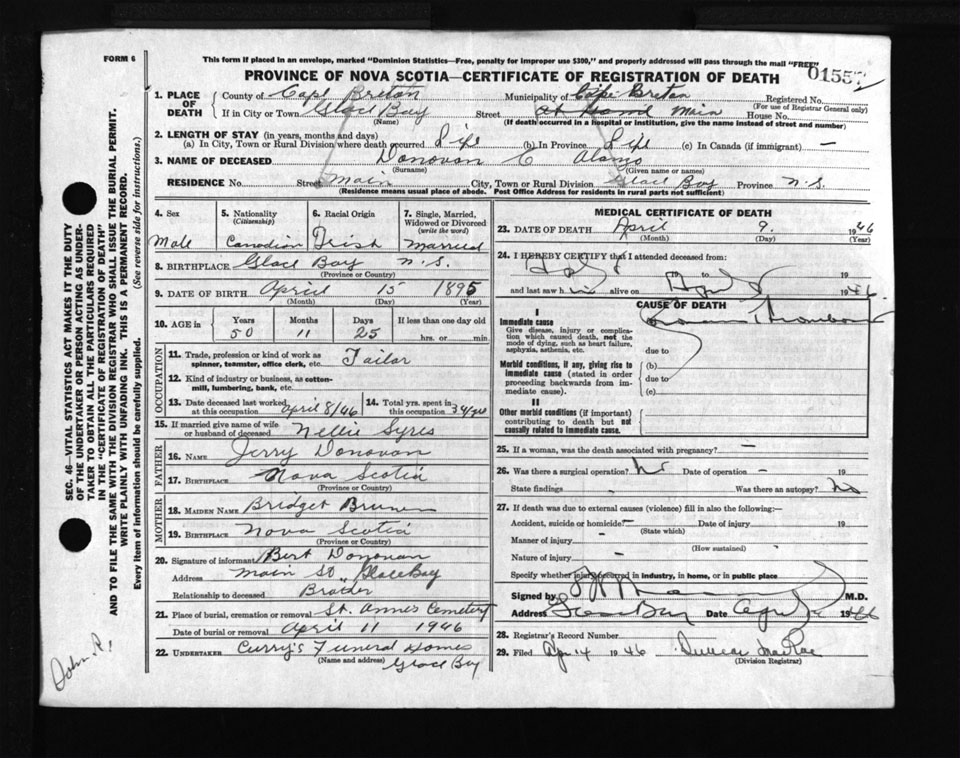 FORM 6
This form if placed in an envelope, marked "Dominion Statistics—Free, penalty for improper use $300," and properly addressed will pass through the mail "FREE"
PROVINCE OF NOVA SCOTIA—CERTIFICATE OF REGISTRATION OF DEATH
01557
1. PLACE OF DEATH
County of Cape Breton Municipality of Cape Breton Registered No.
(For use of Registrar General only)
If in City or Town Glace Bay Street House No.
(Name) (If death occurred in a Hospital or institution, give the name instead of street and number)
2. LENGTH OF STAY (in years, months and days)
(a) In City, Town or Rural Division where death occurred Life (b) In Province Life (c) In Canada (if immigrant) —
3. NAME OF DECEASED Donovan C Alonzo
(Surname) (Given name or names)
RESIDENCE No. Street Main City, Town or Rural Division Glace Bay Province N.S.
(Residence means usual place of abode. Post Office Address for residents in rural parts not sufficient)
4. Sex
Male
5. Nationality
(Citizenship)
Canadian
6. Racial Origin
Irish
7. Single, Married, Widowed or Divorced
(write the word)
Married
8. BIRTHPLACE Glace Bay N.S.
(Province or Country)
9. DATE OF BIRTH April 15 1895
(Month) (Day) (Year)
10. AGE in
Years Months Days If less than one day old
50 11 25 hrs. or min.
OCCUPATION
11. Trade, profession or kind of work as spinner, teamster, office clerk, etc. Tailor
12. Kind of industry or business, as cotton-mill, lumbering, bank, etc.
13. Date deceased last worked at this occupation April 8/46
14. Total yrs. spent in this occupation 34 yrs
15. If married give name of wife or husband of deceased Nellie Syres
FATHER
16. NAME Jerry Donovan
17. BIRTHPLACE Nova Scotia
(Province or Country)
MOTHER
18. MAIDEN NAME Bridget
19. BIRTHPLACE Nova Scotia
(Province or Country)
20. Signature of informant Bert Donovan
Address Main St Glace Bay
Relationship to deceased Brother
21. Place of burial, cremation or removal St. Annes Cemetery
Date of burial or removal April 11 1946
22. UNDERTAKER Curry's Funeral Homes
(Name and address) Glace Bay
MEDICAL CERTIFICATE OF DEATH
23. DATE OF DEATH April 9. 1946
(Month) (Day) (Year)
24. I HEREBY CERTIFY that I attended deceased from:
19 to 19
and last saw h alive on April 8 1946.
CAUSE OF DEATH
I
Immediate cause
Give disease, injury or complication which caused death, not the mode of dying, such as heart failure, asphyxia, asthenia, etc.
due to
Morbid conditions, if any, giving rise to immediate cause (stated in order proceeding backwards from immediate cause).
(b)
due to
(c)
II
Other morbid conditions (if important) contributing to death but not causally related to immediate cause.
25. If a woman, was the death associated with pregnancy? —
26. Was there a surgical operation? No Date of operation — 19
State findings Was there an autopsy? No
27. If death was due to external causes (violence) fill in also the following:—
Accident, suicide or homicide? — Date of injury 19
(State which)
Manner of injury
(How sustained)
Nature of injury
Specify whether injury occurred in industry, in home, or in public place
Signed by M.D.
Address Glace Bay Date 1946
28. Registrar's Record Number
29. Filed Apr 14 1946 Duncan MacRae
(Division Registrar)
SEC. 46—VITAL STATISTICS ACT MAKES IT THE DUTY
OF THE UNDERTAKER OR PERSON ACTING AS UNDER-
TAKER TO OBTAIN ALL THE PARTICULARS REQUIRED
IN THE "CERTIFICATE OF REGISTRATION OF DEATH"
AND TO FILE THE SAME WITH THE DIVISION REGISTRAR WHO SHALL ISSUE THE BURIAL PERMIT.
WRITE PLAINLY WITH UNFADING INK. THIS IS A PERMANENT RECORD.
Every item of information should be carefully supplied. (See reverse side for instructions.)
John R.